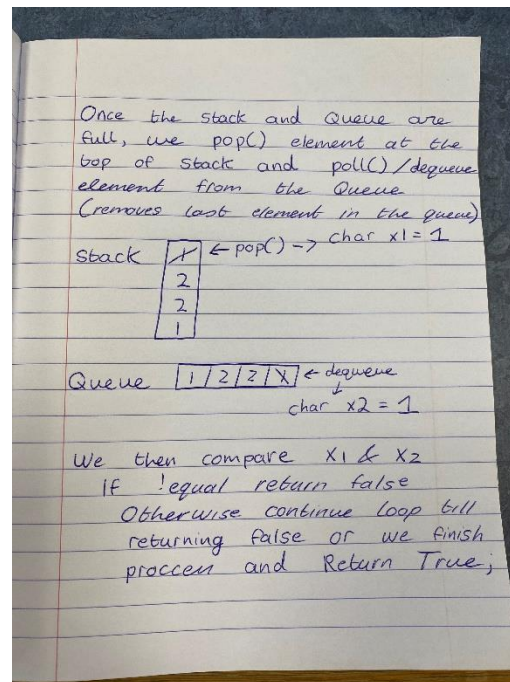 Once the stack and Queue are
full, we pop() element at the
top of stack and poll()/dequeue
element from the Queue
(removes last element in the queue)
stack 1 ← pop() -> char x1 = 1
2
2
1
Queue 1 2 2 1 ← dequeue
char x2 = 1
We then compare x1 & x2
If !equal return false
Otherwise continue loop till
returning false or we finish
proccess and Return True;